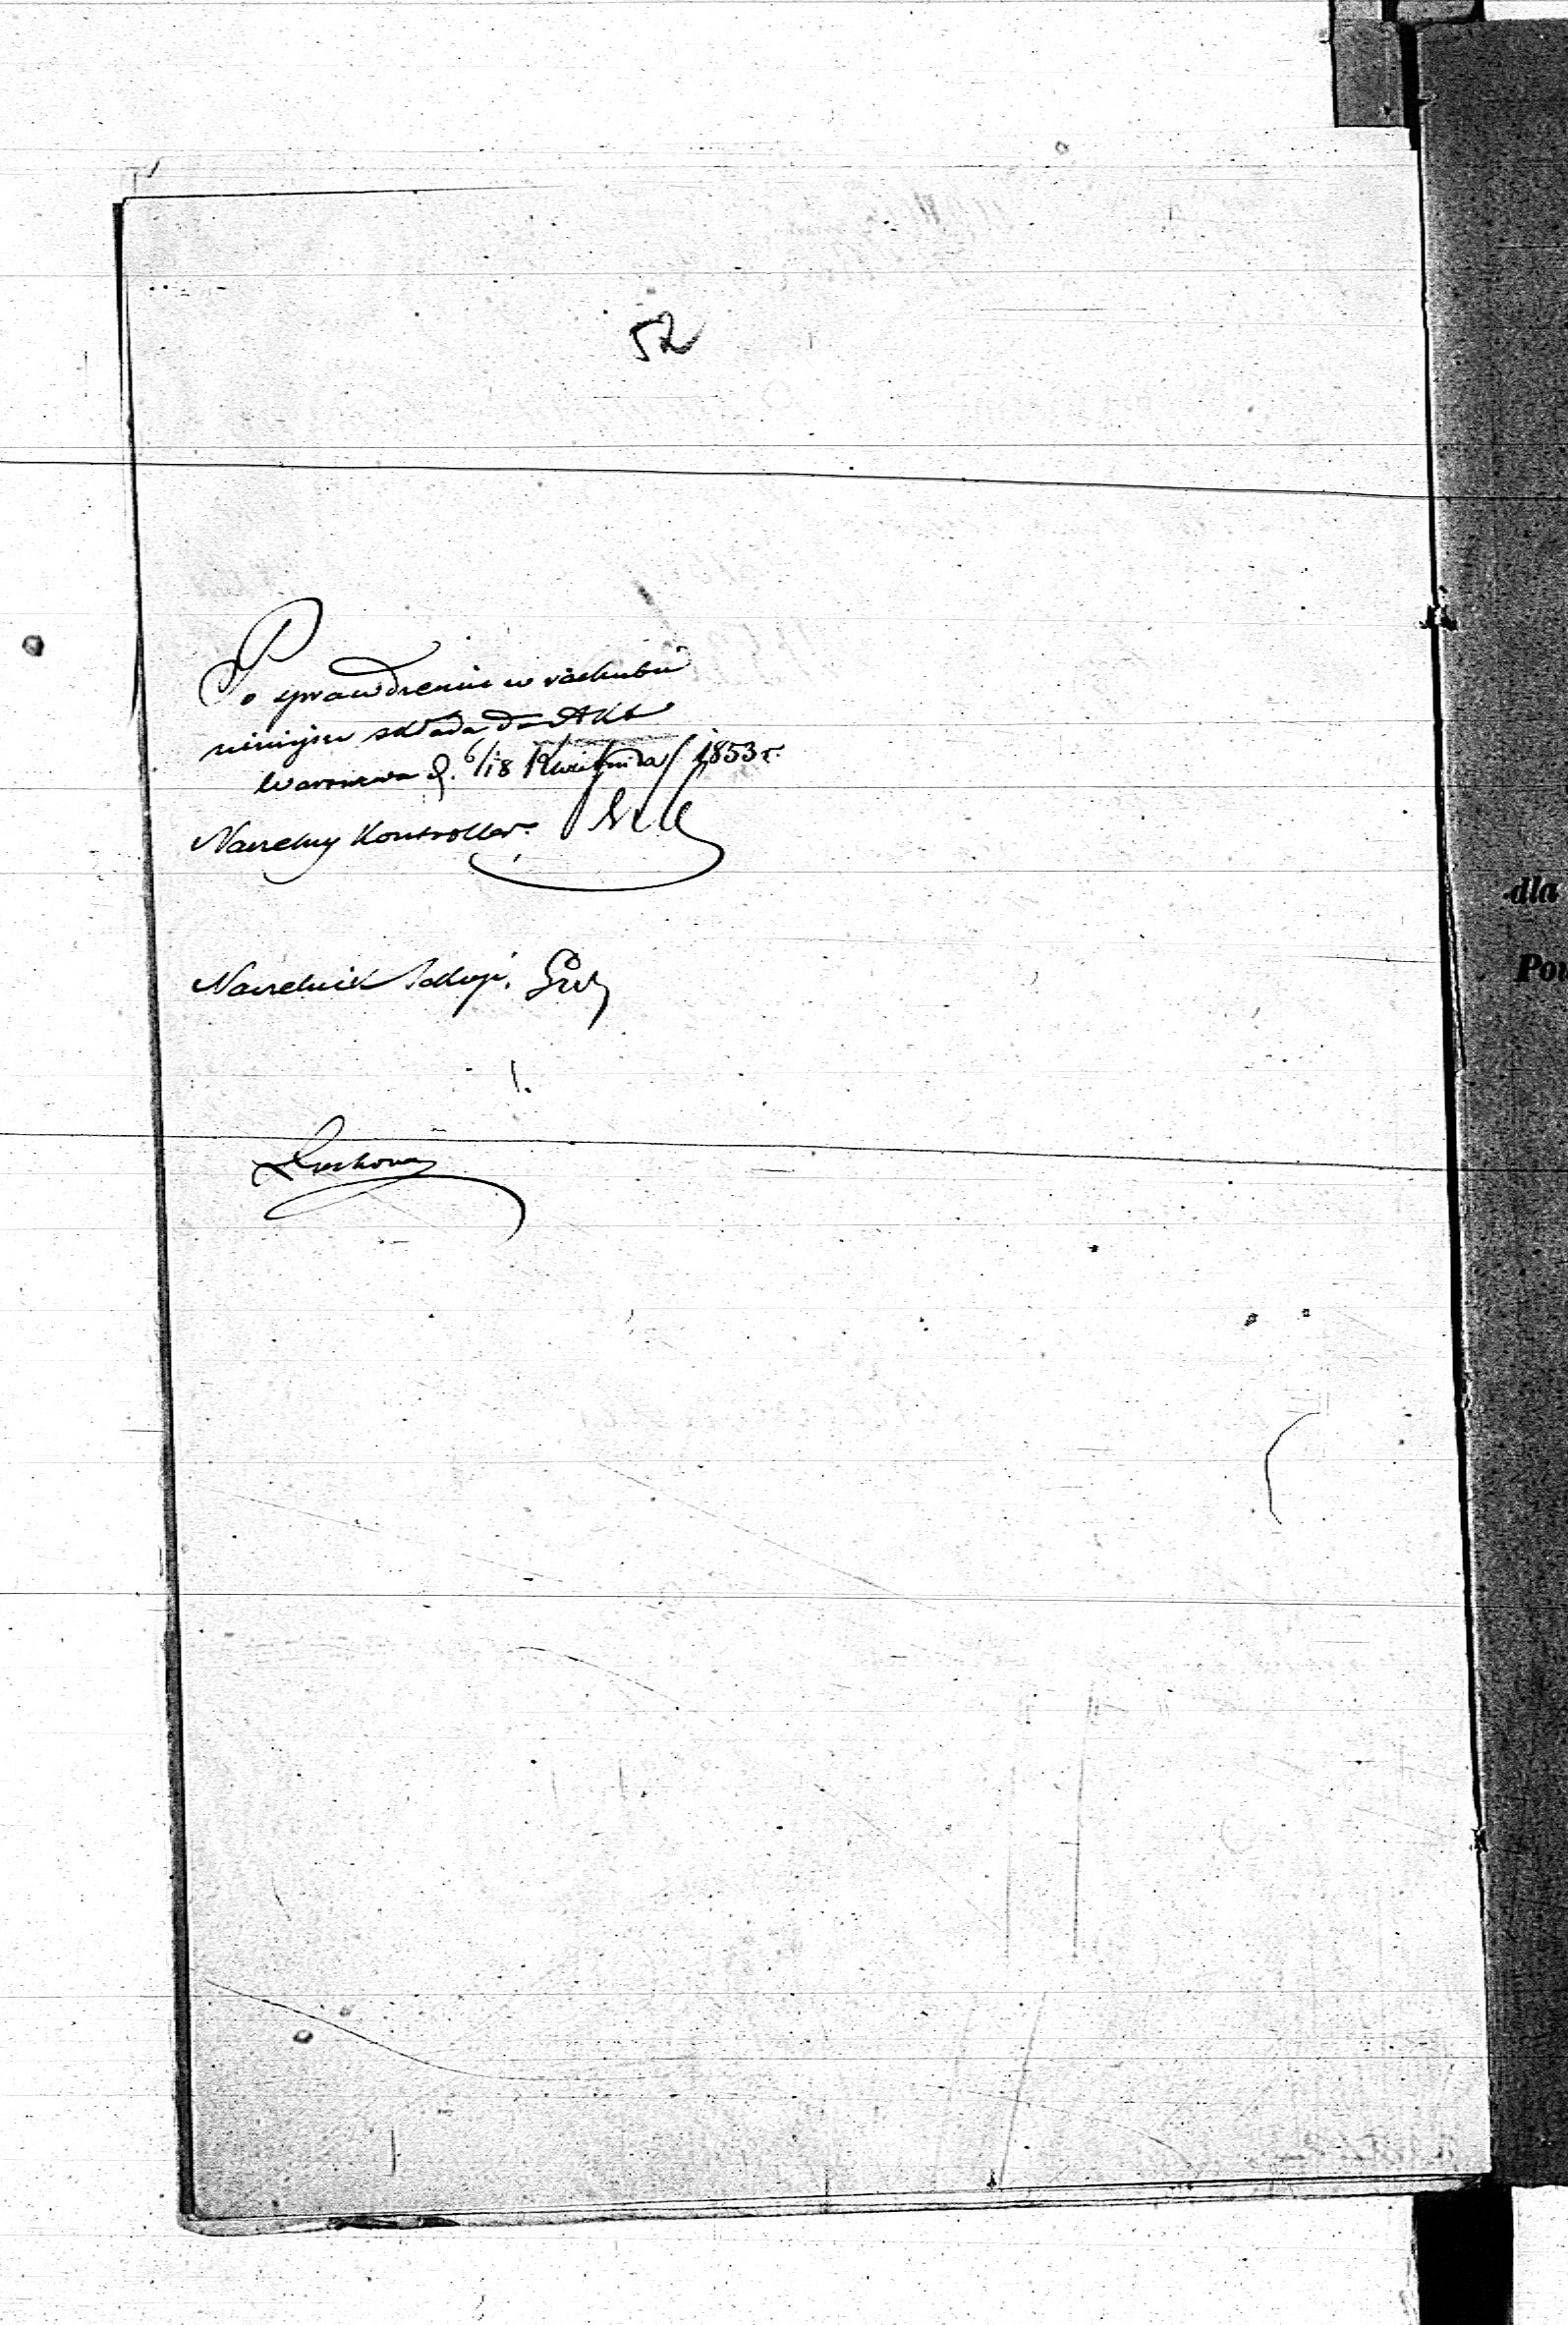 52
Po sprawdzeniu w rachubie
niniejsze składa do Akt
Warszawa d. 6/18 Kwietnia 1853 r.
Naczelny Kontroller
Naczelnik Sekcyi.
dla
Pow